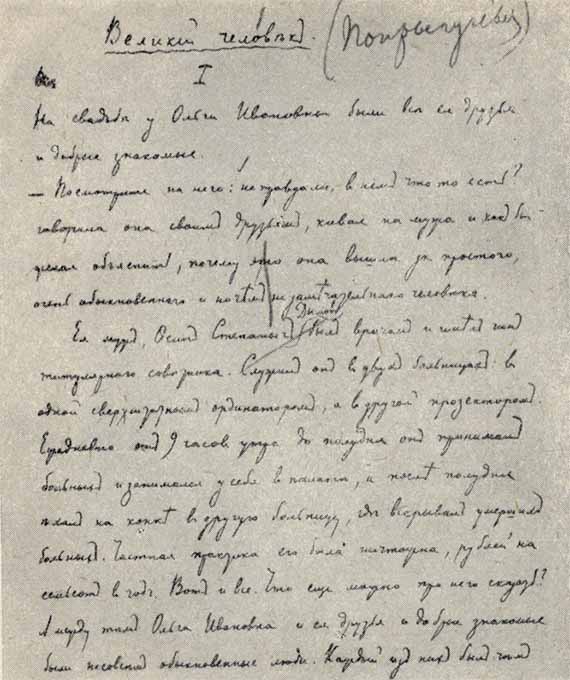 Великій человѣкъ.
I
На свадьбѣ у Ольги Ивановны были всѣ ея друзья
и добрые знакомые.
— Посмотрите на него: не правда ли, въ немъ что-то есть?
говорила она своимъ друзьямъ, кивая на мужа и какъ бы
желая объяснить, почему это она вышла за простого,
очень обыкновеннаго и ничѣмъ не замѣчательнаго человѣка.
Ея мужъ, Осипъ Степанычъ Дымовъ былъ врачомъ и имѣлъ чинъ
титулярнаго совѣтника. Служилъ онъ въ двухъ больницахъ: въ
одной сверхштатнымъ ординаторомъ, а въ другой прозекторомъ.
Ежедневно отъ 9 часовъ утра до полудня онъ принималъ
больныхъ и занимался у себя в палатѣ, а послѣ полудня
ѣхалъ на конкѣ въ другую больницу, гдѣ вскрывалъ умершихъ
больныхъ. Частная практика его была ничтожна, рублей на
семьсотъ в годъ. Вотъ и все. Что еще можно про него сказать?
А между тѣмъ Ольга Ивановна и ея друзья и добрые знакомые
были не совсѣмъ обыкновенные люди. Каждый изъ нихъ былъ чѣмъ